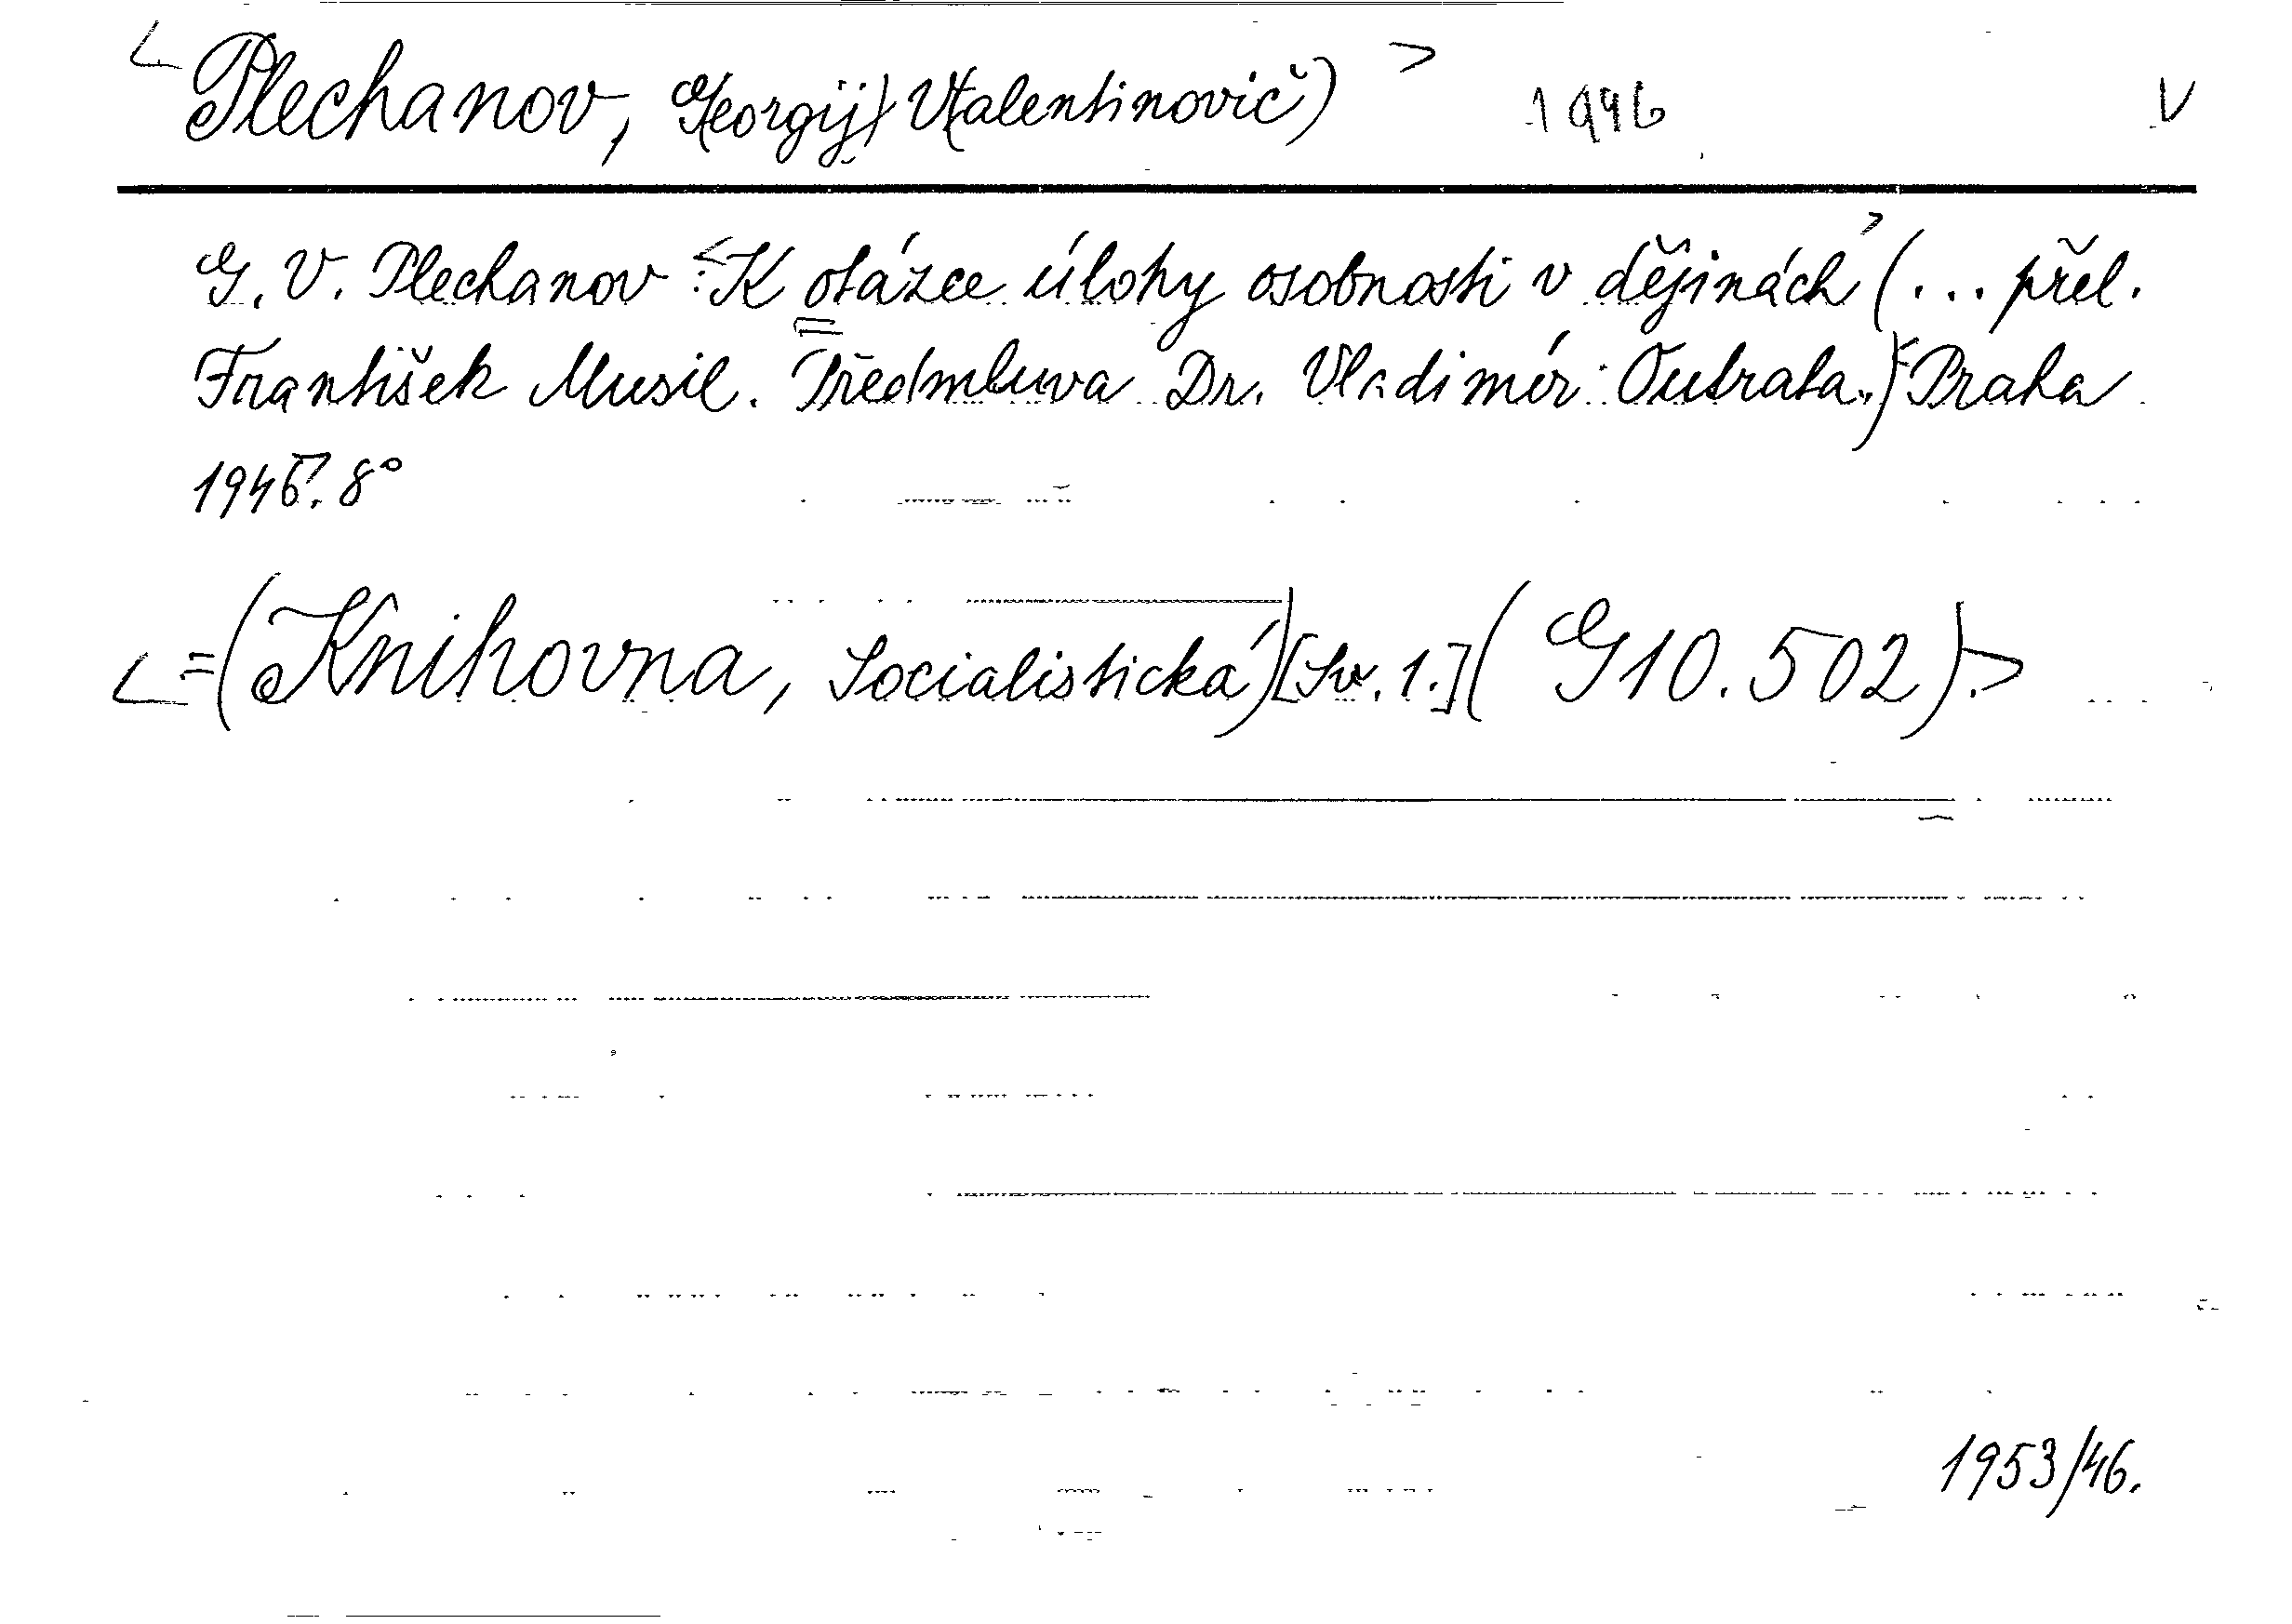 <Plechanov, G(eorgij) V(alentinovič)> 1946 V
G. V. Plechanov: <K otázce úlohy osobnosti v dějinách> (... přel.
František Musil. Předmluva Dr. Vladimír Outrata.) <Praha
1946>. 8°
<=(Knihovna, Socialistická) [Sv. 1.] (G10.502).>
1953/46.